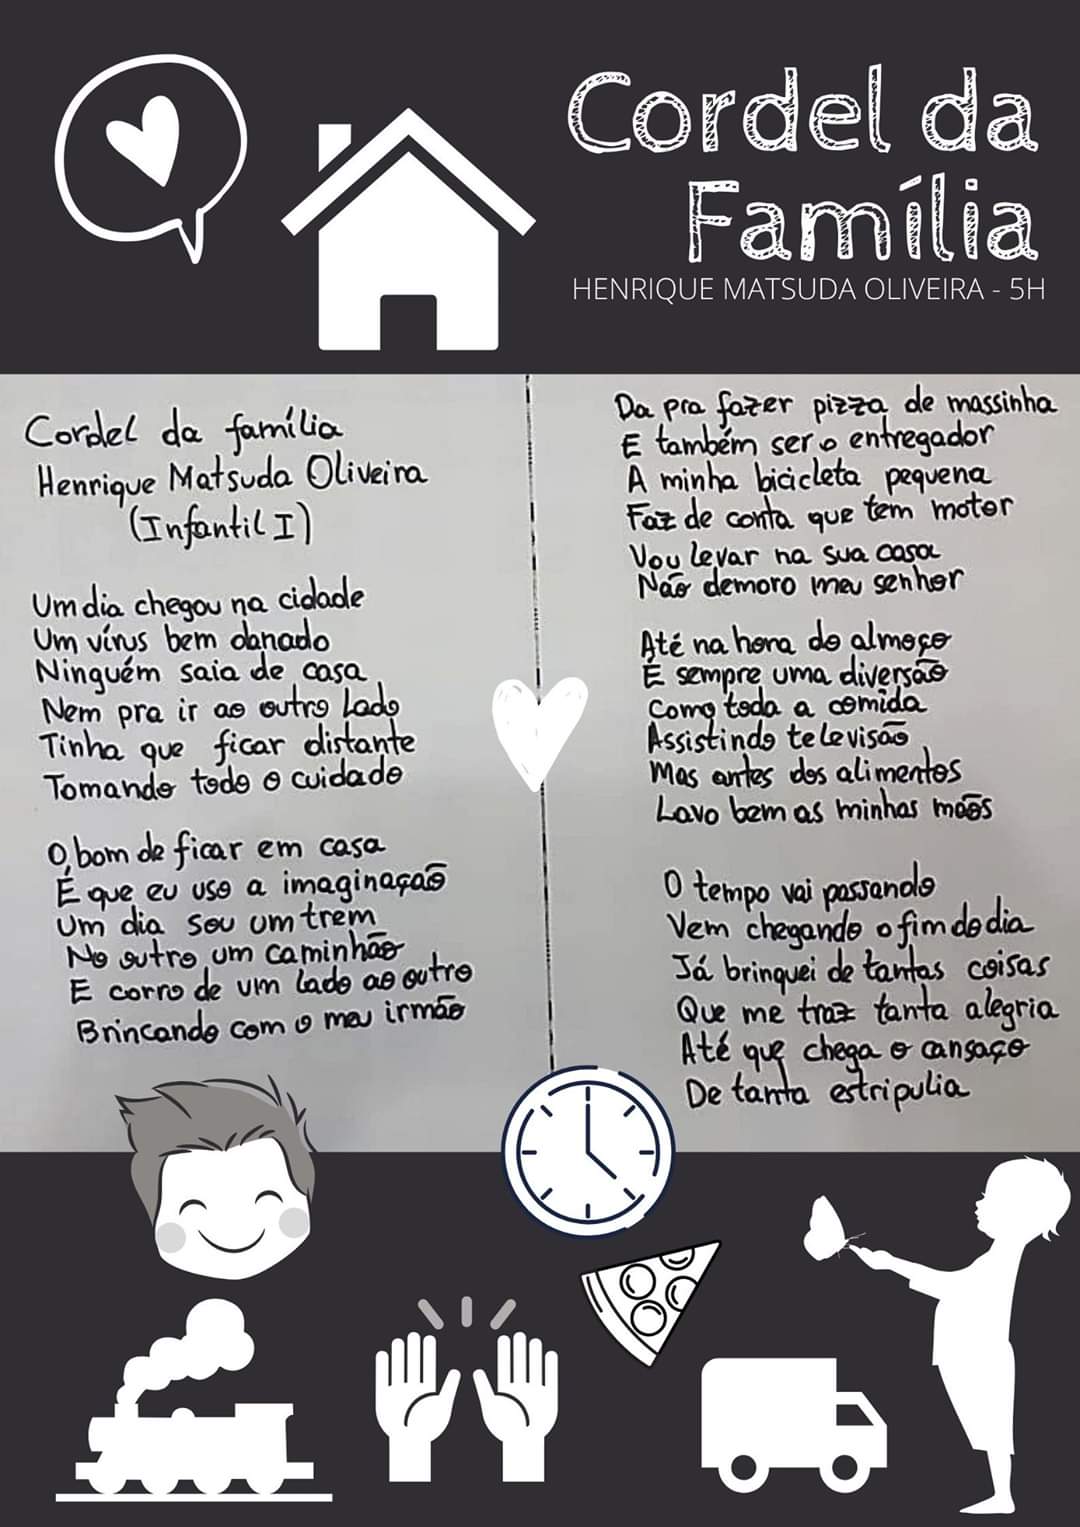 Cordel da
Família
HENRIQUE MATSUDA OLIVEIRA - 5H
Cordel da família
Henrique Matsuda Oliveira
(Infantil I)
Um dia chegou na cidade
Um vírus bem danado
Ninguém saia de casa
Nem pra ir ao outro lado
Tinha que ficar distante
Tomando todo o cuidado
O bom de ficar em casa
É que eu uso a imaginação
Um dia sou um trem
No outro um caminhão
E corro de um lado ao outro
Brincando com o meu irmão
Da pra fazer pizza de massinha
E também ser o entregador
A minha bicicleta pequena
Faz de conta que tem motor
Vou levar na sua casa
Não demoro meu senhor
Até na hora do almoço
É sempre uma diversão
Como toda a comida
Assistindo televisão
Mas antes dos alimentos
Lavo bem as minhas mãos
O tempo vai passando
Vem chegando o fim do dia
Já brinquei de tantas coisas
Que me traz tanta alegria
Até que chega o cansaço
De tanta estripulia